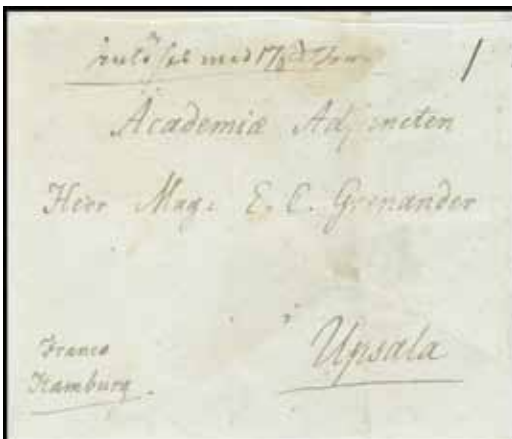 med
/
Academiæ Adjuncten
Herr Mag: E. C. Grenander
i
Upsala
Franco
Hamburg.